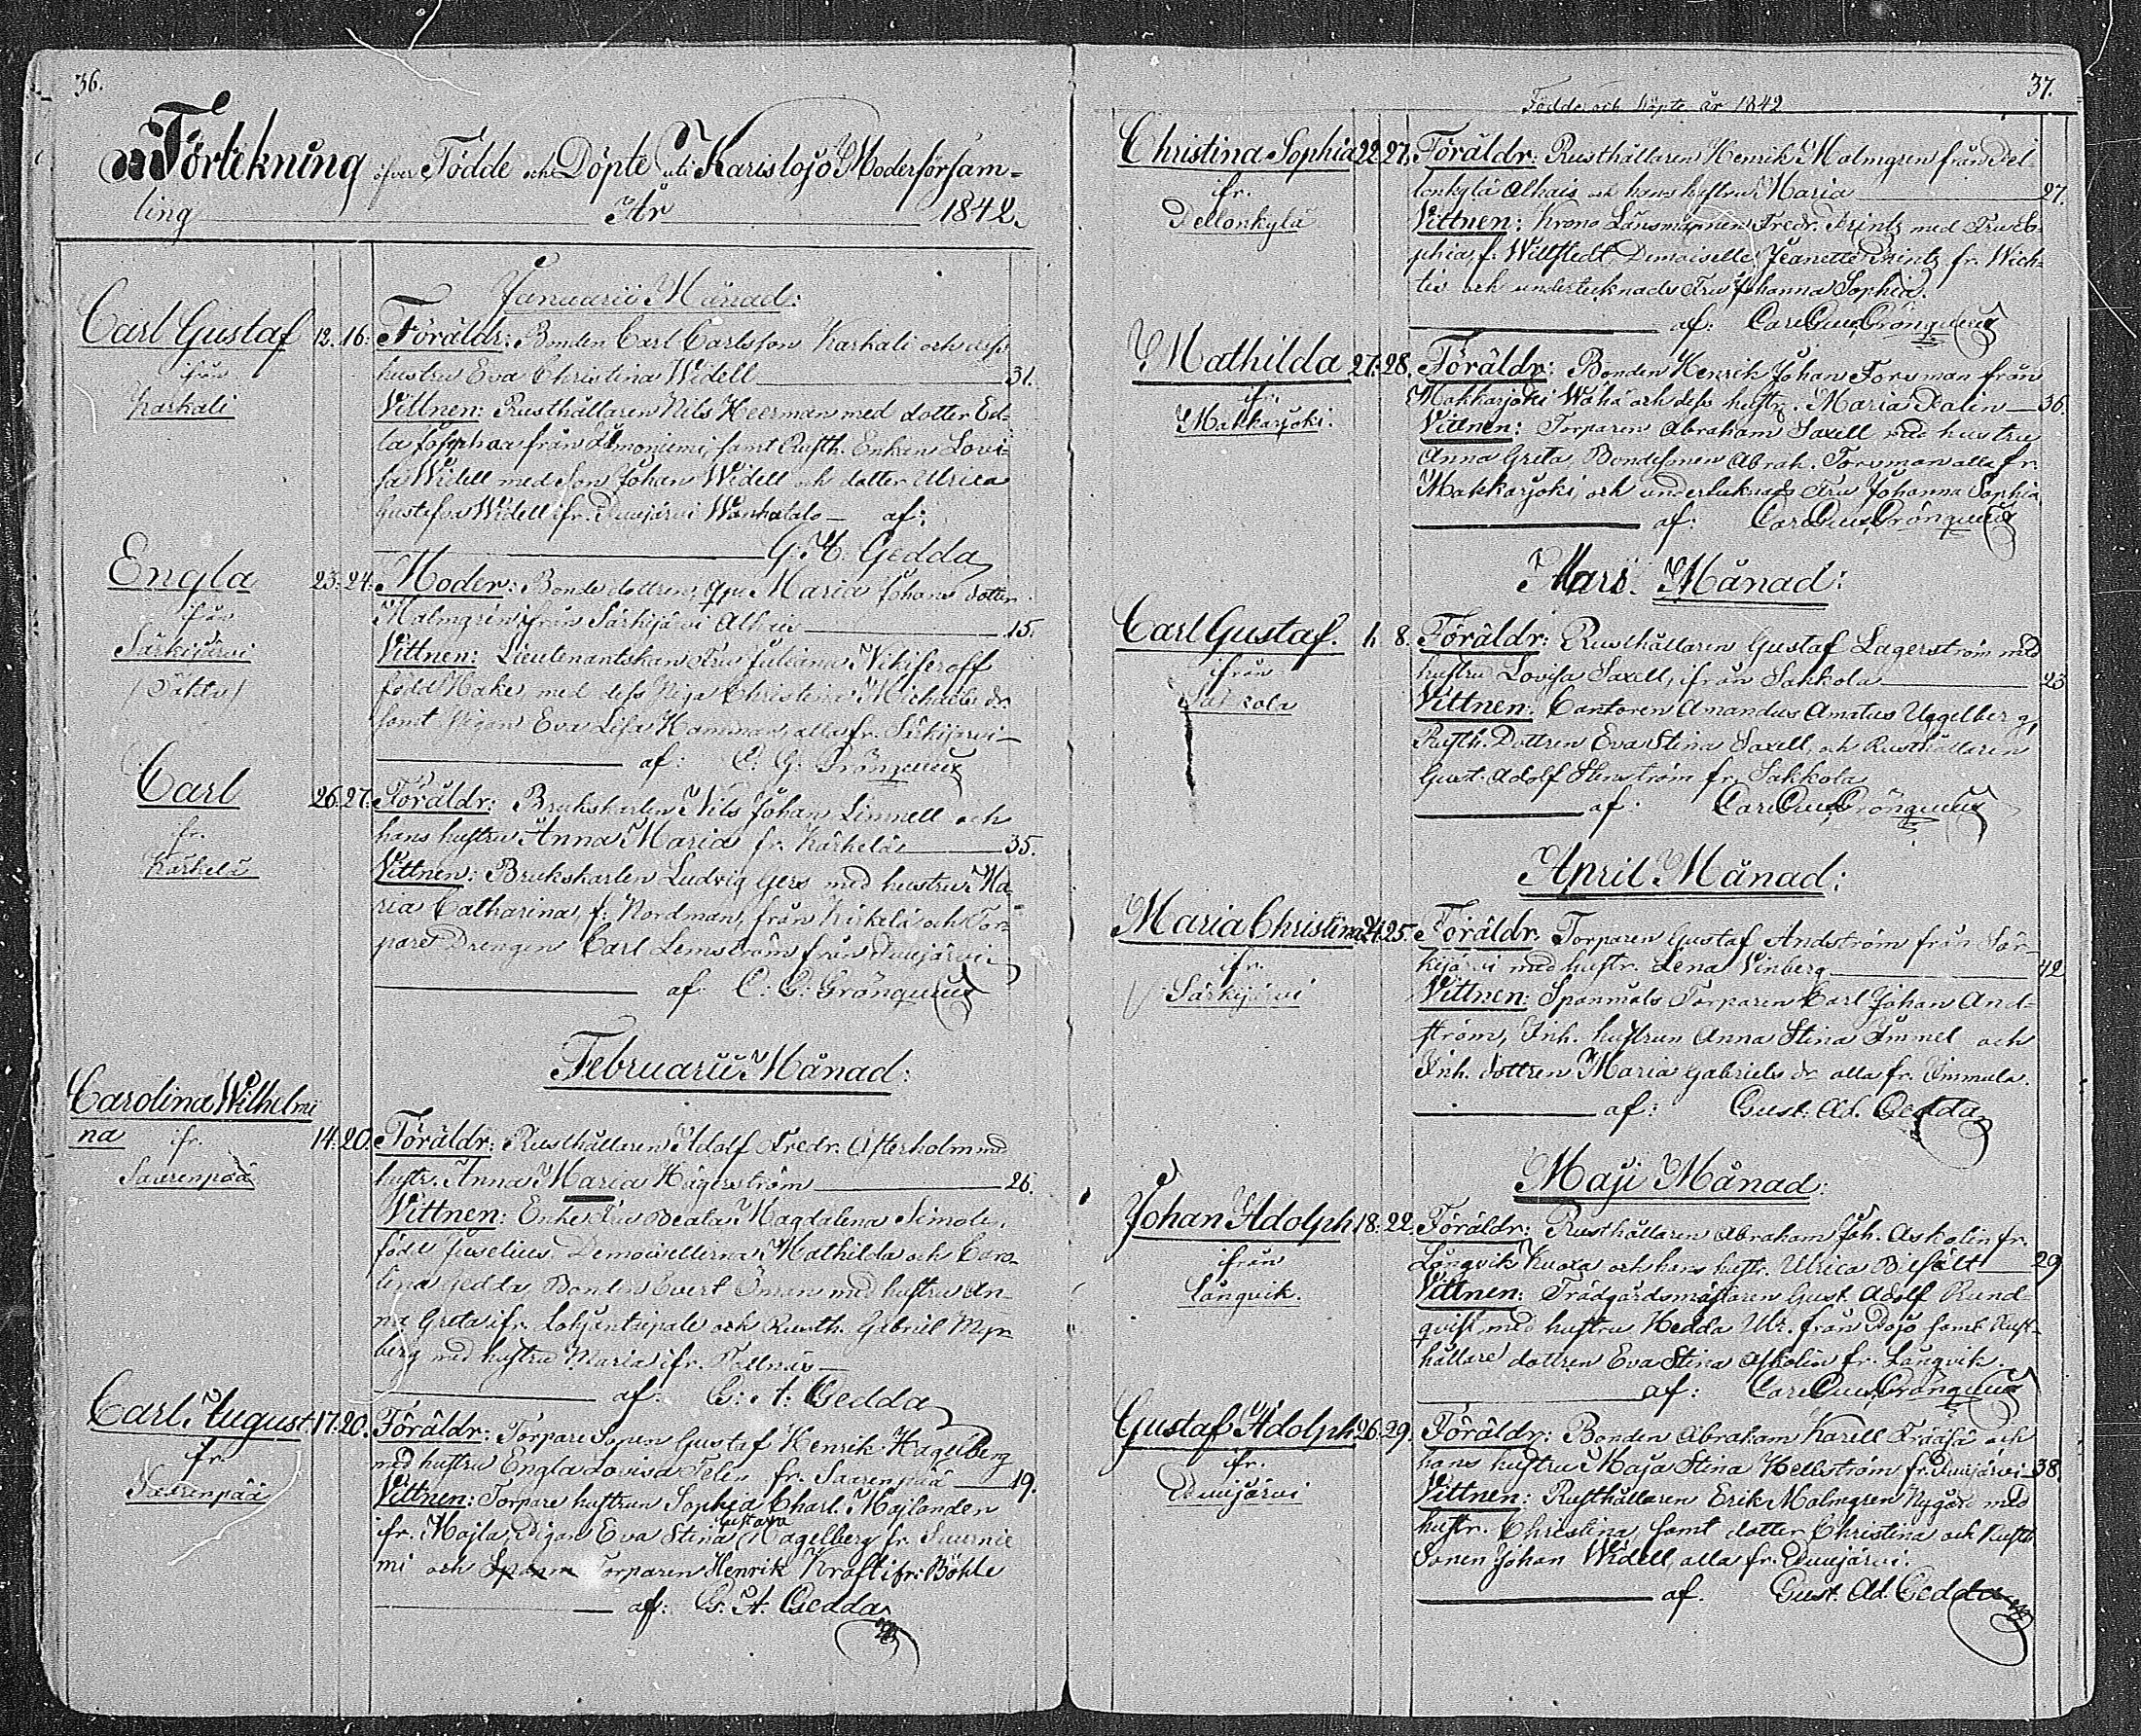 36.
Förtekning öfver Födde och Döpte uti Karislojo Moderförsam-
ling År 1842.
Januarii Månad:
Carl Gustaf 12. 16. Föräldr: Bonden Carl Carlsson Karkali och dess
ifrån hustru Eva Christina Widell 31.
Karkali Vittnen: Rusthållaren Nils Heerman med dotter Ed-
la från samt Rusth. Enkan Lovi-
sa Widell med son Johan Widell och dotter Ulrica
Gustafva Widell ifr. Suurjärvi Wanhatalo af:
G. A. Gedda
Engla 23. 24. Moder: Bondedottren, Maria Johans dotter
ifrån Malmgren ifrån Särkijärvi Alhais 15.
Särkijärvi Vittnen: Lieutenantskan Fru Juliana Nikiferoff
(Oäkta) född Hake, med dess Piga Christina Michaels dr
samt Pigan Eva Lisa Hamman, alla fr. Särkijärvi
af: C. G. Grönqvist
Carl 26. 27. Föräldr: Brukskarlen Nils Johan Linnell och
ifr. hans hustru Anna Maria fr. Kärkelä 35.
Kärkelä Vittnen: Brukskarlen Ludvig Gers med hustru Ma-
ria Catharina, f: Nordman, från Kärkelä och Tor-
pare Drengen Carl Lemström från Suurjärvi
af C: G: Grönqvist
Februarii Månad:
Carolina Wilhelmi
na ifr. 14. 20. Föräldr: Rusthållaren Adolf Fredr. Asterholm med
Saarenpää hustr. Anna Maria Hägerström 26.
Vittnen: Enke Fru Beata Magdalena Simolin,
född Juselius, Demoisellerna Mathilda och Caro-
lina Gedda, Bonden Evert Öman med hustru An-
na Greta ifr. Lohjantaipale och Rusth. Gabriel Myr-
berg med hustru Maria ifr. Tallnäs
af: G: A: Gedda
Carl August 17. 20. Föräldr: Torpare Sonen Gustaf Henrik Hagelberg
ifr. med hustru Engla Lovisa Telen fr. Saarenpää 19.
Saarenpää Vittnen: Torpare hustrun Sophia Charl. Majlander
ifr. Majla, Pigan Eva Stina Gustava Hagelberg fr. Suurnie
mi och Torparen Henrik Kraft ifr: Böhle
af: G. A. Gedda

37.
Födde och Döpte år 1842
Christina Sophia 22. 27. Föräldr: Rusthållaren Henrik Malmgren från Del-
ifr. lonkylä Alhais och hans hustru Maria 27.
Dellonkylä Vittnen: Krono Länsmannen Fredr. Printz med Fru So-
phia, f: Willstedt, Demoiselle Jeanette Printz fr. Wich-
tis och undertecknads Fru Johanna Sophia.
af: Carl Gust. Grönqvist
Mathilda 27. 28. Föräldr: Bonden Henrik Johan Forsman från
ifr. Makkarjoki Wähä och dess hustr. Maria Dalin 36.
Makkarjoki. Vittnen: Torparen Abraham Saxell med hustru
Anna Greta, Bondesonen Abrah. Forsman alla fr.
Makkarjoki och undertecknads Fru Johanna Sophia
af: Carl Gust. Grönqvist
Mars. Månad:
Carl Gustaf. 8. Föräldr: Rusthållaren Gustaf Lagerström med
ifrån hustru Lovisa Saxell, ifrån Sakkola 23
Sakkola Vittnen: Cantoren Amandus Amatus Uggelberg,
Rusth. Dottren Eva Stina Saxell, och Rusthållaren
Gust. Adolf Stenström fr. Sakkola
af: Carl Gust. Grönqvist
April Månad:
Maria Christina 24. 25. Föräldr. Torparen Gustaf Andström från Sär-
ifr. kijärvi med hustr. Lena Vinberg 42
Särkijärvi Vittnen: Spanmåls Torparen Carl Johan And-
ström, Inh. hustrun Anna Stina Immel och
Inh. dottren Maria Gabriels dr alla fr. Immola.
af: Gust. Ad. Gedda
Maji Månad:
Johan Adolph 18. 22. Föräldr: Rusthållaren Abraham Joh. Askolin fr.
ifrån Långvik Kuoxa och hans hustr. Ulrica Bifält 29
Långvik. Vittnen: Trädgårdsmästaren Gust. Adolf Rund-
qvist med hustru Hedda Ulr. från samt Rust-
hållare dottren Eva Stina Askolin fr. Långvik.
af: Carl Gust. Grönqvist
Gustaf Adolph 26. 29. Föräldr: Bonden Abraham Karell och
ifr. hans hustru Maja Stina Hellström fr. Suurjärvi 38.
Suurjärvi Vittnen: Rusthållaren Erik Malmgren Nygård med
hustr. Christina, samt dotter Christina och Rusth.
Sonen Johan Widell, alla fr. Suurjärvi.
af. Gust. Ad. Gedda